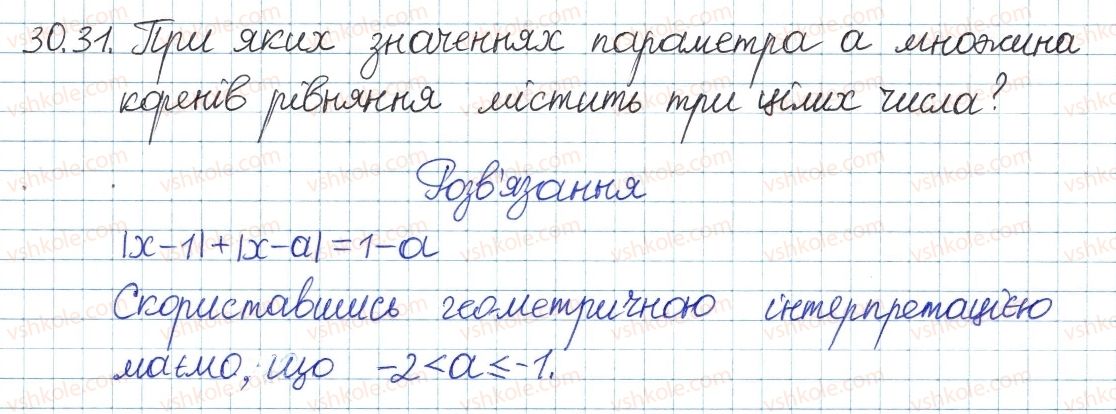 30.31. При яких значеннях параметра a множина
коренів рівняння містить три цілих числа?
Розв'язання
|x-1|+|x-a|=1-a
Скориставшись геометричною інтерпретацією
маємо, що -2<a≤-1.